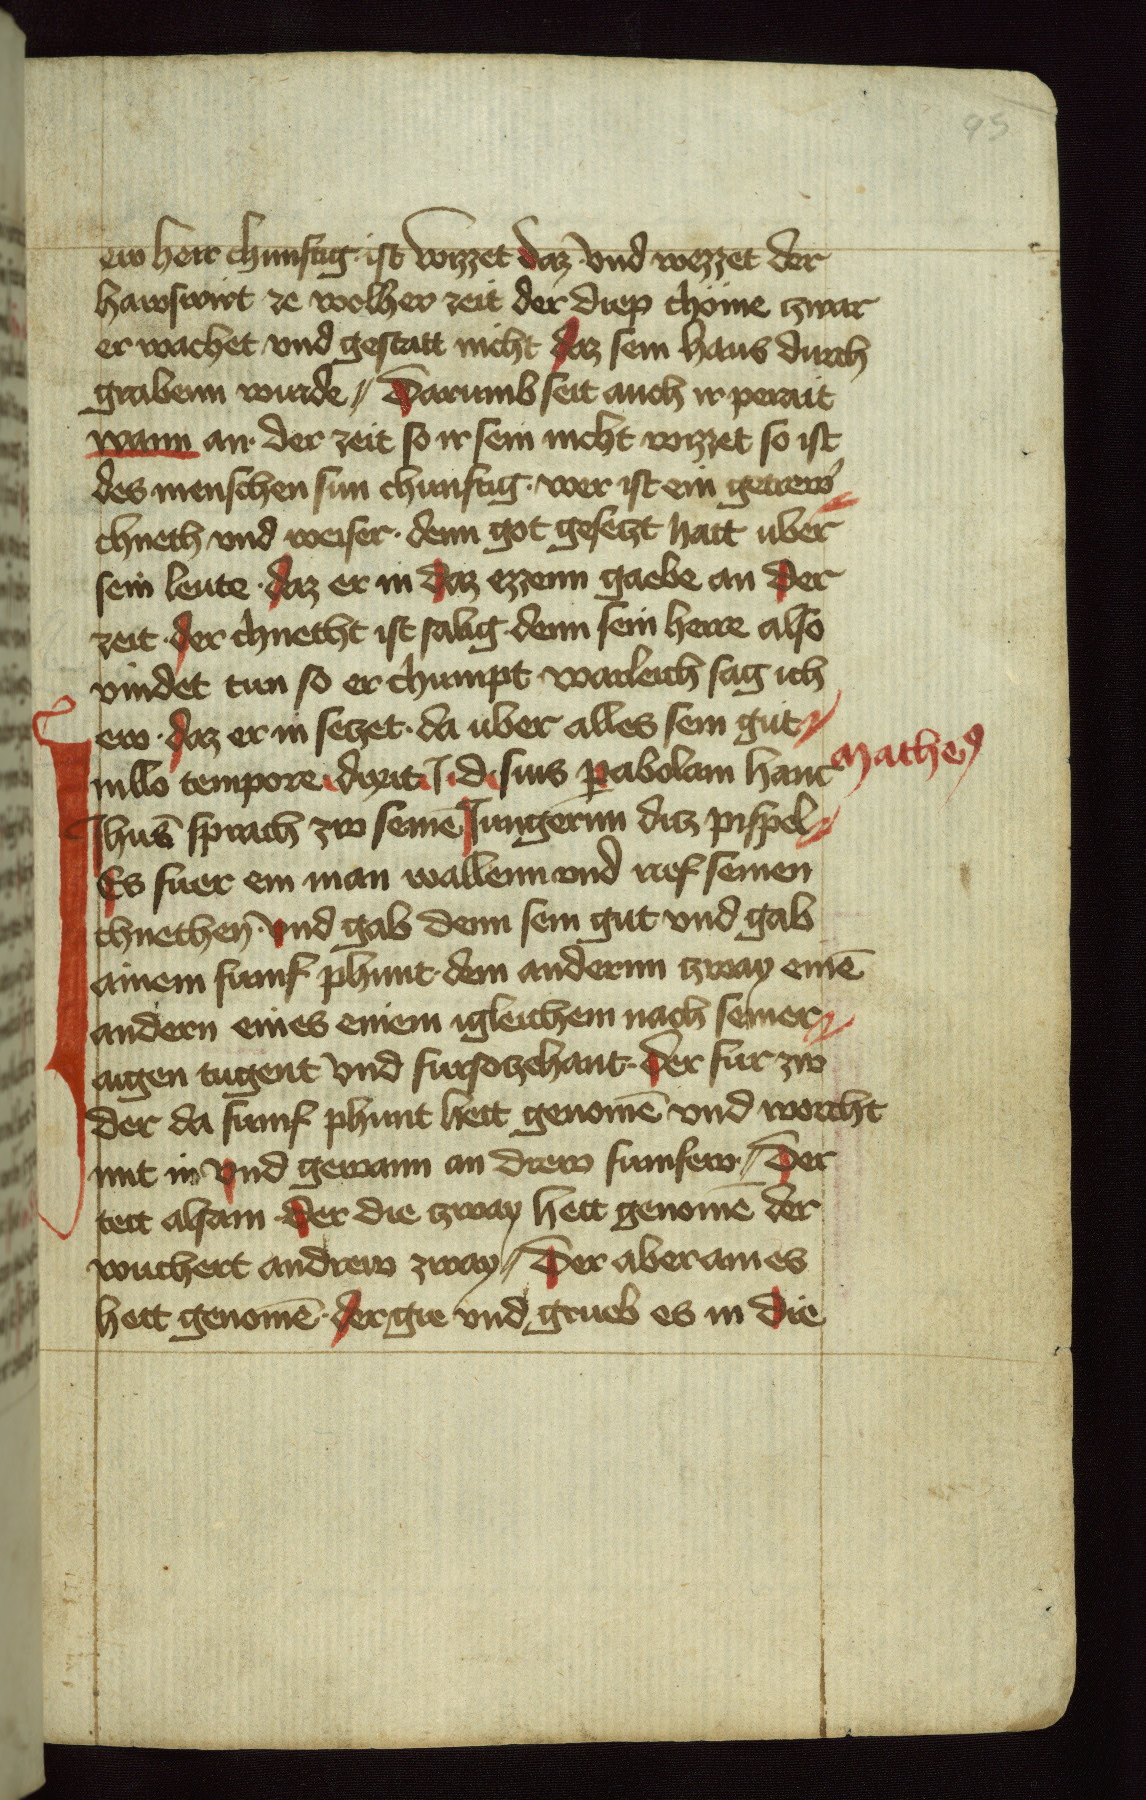 95
ew herr chunftig · ist wizzet daz · und wezzet der
hawswirt ze wolher zeit der diep chöme zwar
er wachet und gestatt nicht daz sein haus durch
grabenn wurde // Darumb seit auch ir perait
wann an · der zeit so ir sein nicht wizzet so ist
des menschen sun chunftig · wer ist ein getrew
chneth und weiser · denn got gesetzt hatt uber
sein leute · daz er in daz ezzenn gaebe an der
zeit · der chnecht ist salig denn sein herre also
vindet tun so er chumpt warleich sag ich
ew · daz er in setzet · da uber alles sein gut
Mathe9
In illo tempore dixit J · d · suis pabolam hanc
Jhus̄ sprach zw seinē Jungernn ditz pispel
Es fuer ein man wallenn und rief seinen
chnethen̄ · und gab denn sein gut und gab
ainem fumf phunt · dem andernn zway einē
andern eines einem igleichem nach seiner
aigen tugent und fur so zehant · der fur zw
der da fumf phunt hett genomē und worcht
mit in und gewann an drew fumfew // Der
tett alsam · der die zway hett genomē der
wuchert andrew zway // Der aber aines
hett genomē · der gie und grueb es in die